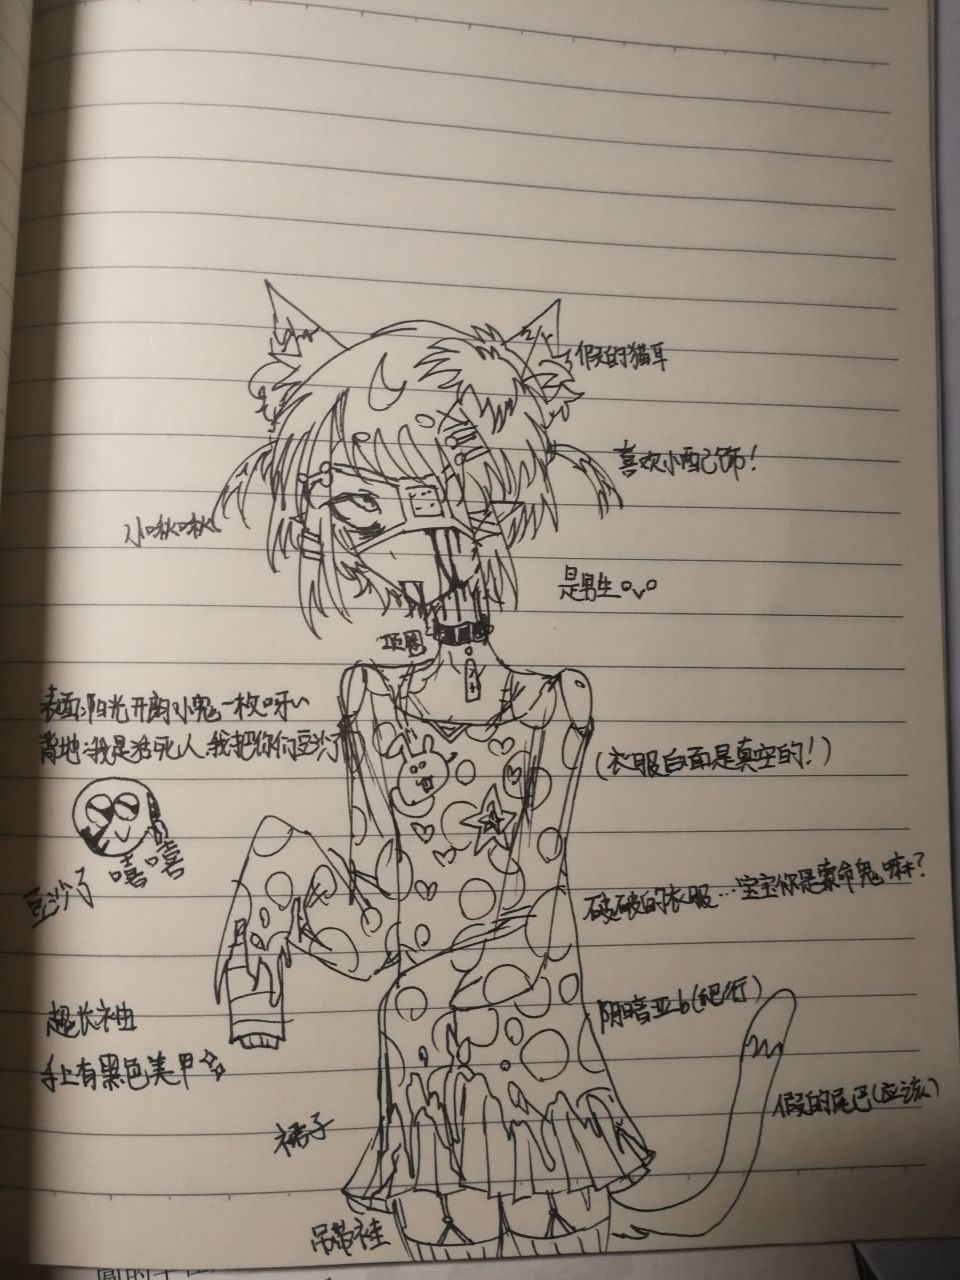 假的猫耳
喜欢小配饰!
小啾啾
是男生ovo
项圈
表面:阳光开朗小鬼一枚呀~
背地:我是活死人,我把你们豆沙了
(衣服后面是真空的!)
嘻嘻
豆沙了
破破的衣服…宝宝你是索命鬼嘛?
阴暗亚b(爬行)
超长袖
手上有黑色美甲
假的尾巴(应该)
裙子
吊带袜